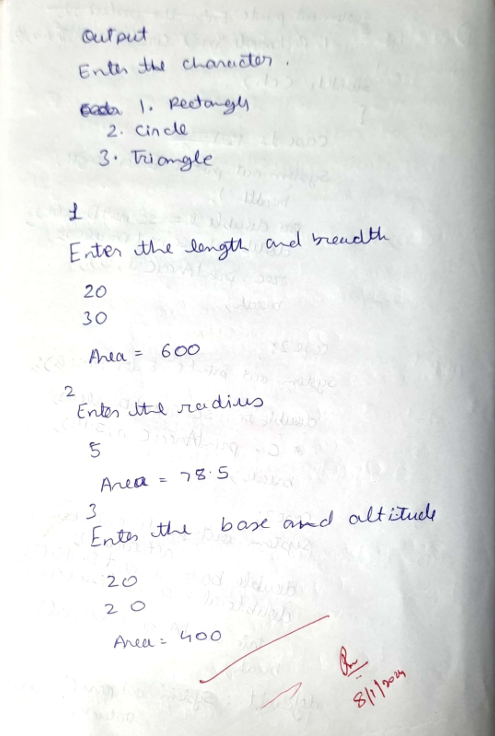 output
Enter the character.
1. Rectangle
2. Circle
3. Triangle
1
Enter the length and breadth
20
30
Area = 600
2
Enter the radius
5
Area = 78.5
3
Enter the base and altitude
20
20
Area = 400
8/1/2024